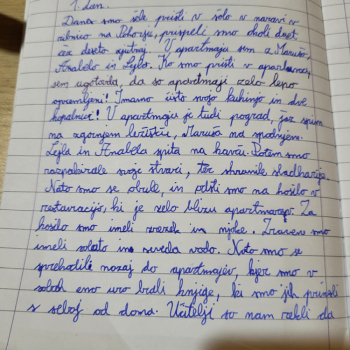 1. dan.
Danes smo šli prišli v šolo v naravi v
ribnico na Pohorju, prispeli smo okoli deset
čez deseto zjutraj. V apartmaju sem z Marušo,
Analelo in Lejlo. Ko smo prišli v apartmaj,
sem ugotovila, da so apartmaji zelo lepo
opremljeni! Imamo čisto svojo kuhinjo in dve
kopalnice! V apartmaju je tudi pograd, jaz spim
na zgornjem ležišču, Maruša na spodnjem.
Lejla in Analela spita na kavču. Potem smo
razpakirale svoje stvari, ter shranile sladkarije.
Nato smo se obule, in odšli smo na kosilo v
restavracijo, ki je zelo blizu apartmajev. Za
kosilo smo imeli zrezek in njoke. Zraven smo
imeli solato in seveda vodo. Nato smo se
sprehodile nazaj do apartmajev, kjer smo v
sobah eno uro brali knjige, ki smo jih prinesli
s seboj od doma. Učitelji so nam rekli da